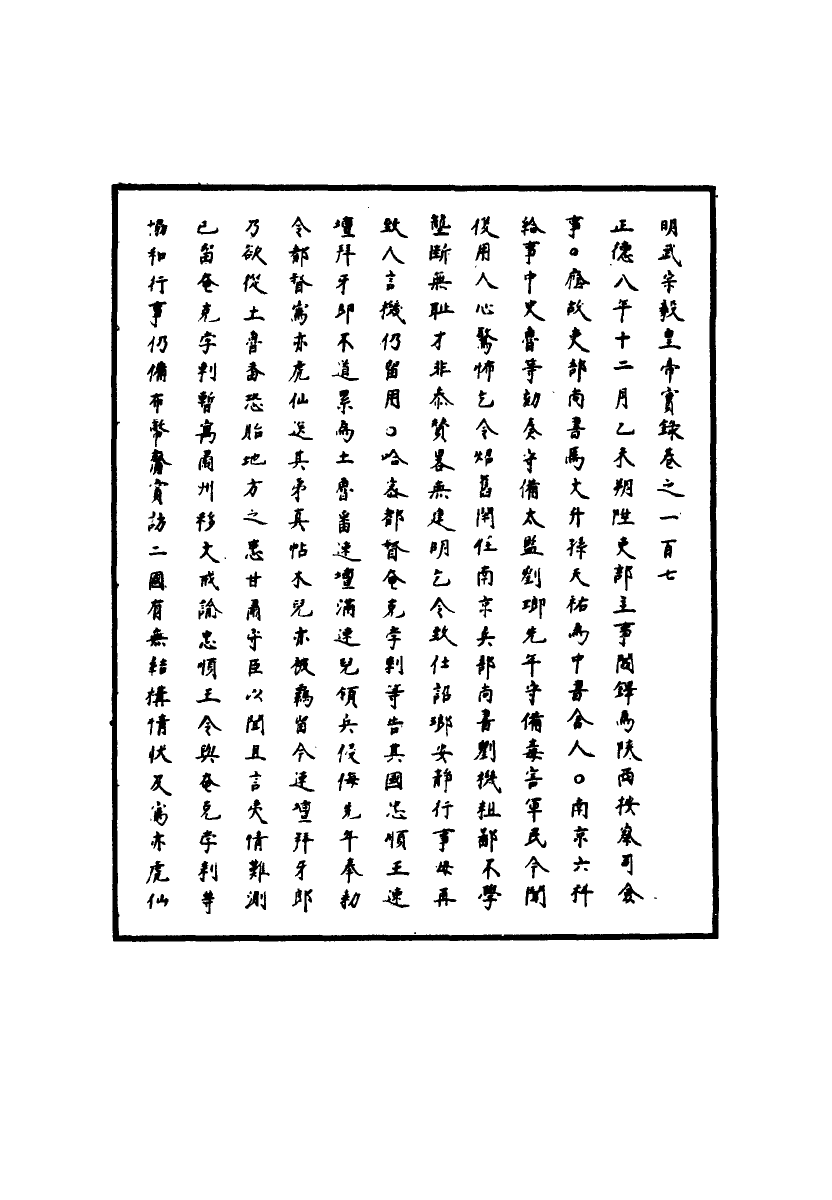 明武宗毅皇帝實錄卷之一百七
正德八年十二月乙未朔陞吏部主事閻鐸為陝西按察司僉
事○廕故吏部尚書馬文升孫天祐為中書舍人○南京六科
給事中史魯等劾奏守備太監劉瑯先年守備毒害軍民今聞
復用人心驚怖乞令炤舊閑住南京兵部尚書劉機粗鄙不學
壟斷無恥才非叅贊畧無建明乞令致仕詔瑯安靜行事毋再
致人言機仍留用○哈密都督奄克孛剌等告其國忠順王速
壇拜牙郎不道累為土魯番速壇滿速兒領兵侵侮先年奉勑
令都督寫亦虎仙送其弟真帖木兒亦被羈留今速壇拜牙郎
乃欲從土魯番恐貽地方之患甘肅守臣以聞且言夷情難測
已留奄克孛剌暫寓肅州移文戒諭忠順王令與奄克孛剌等
協和行事仍備布幣齎賞訪二國有無結搆情狀及寫亦虎仙